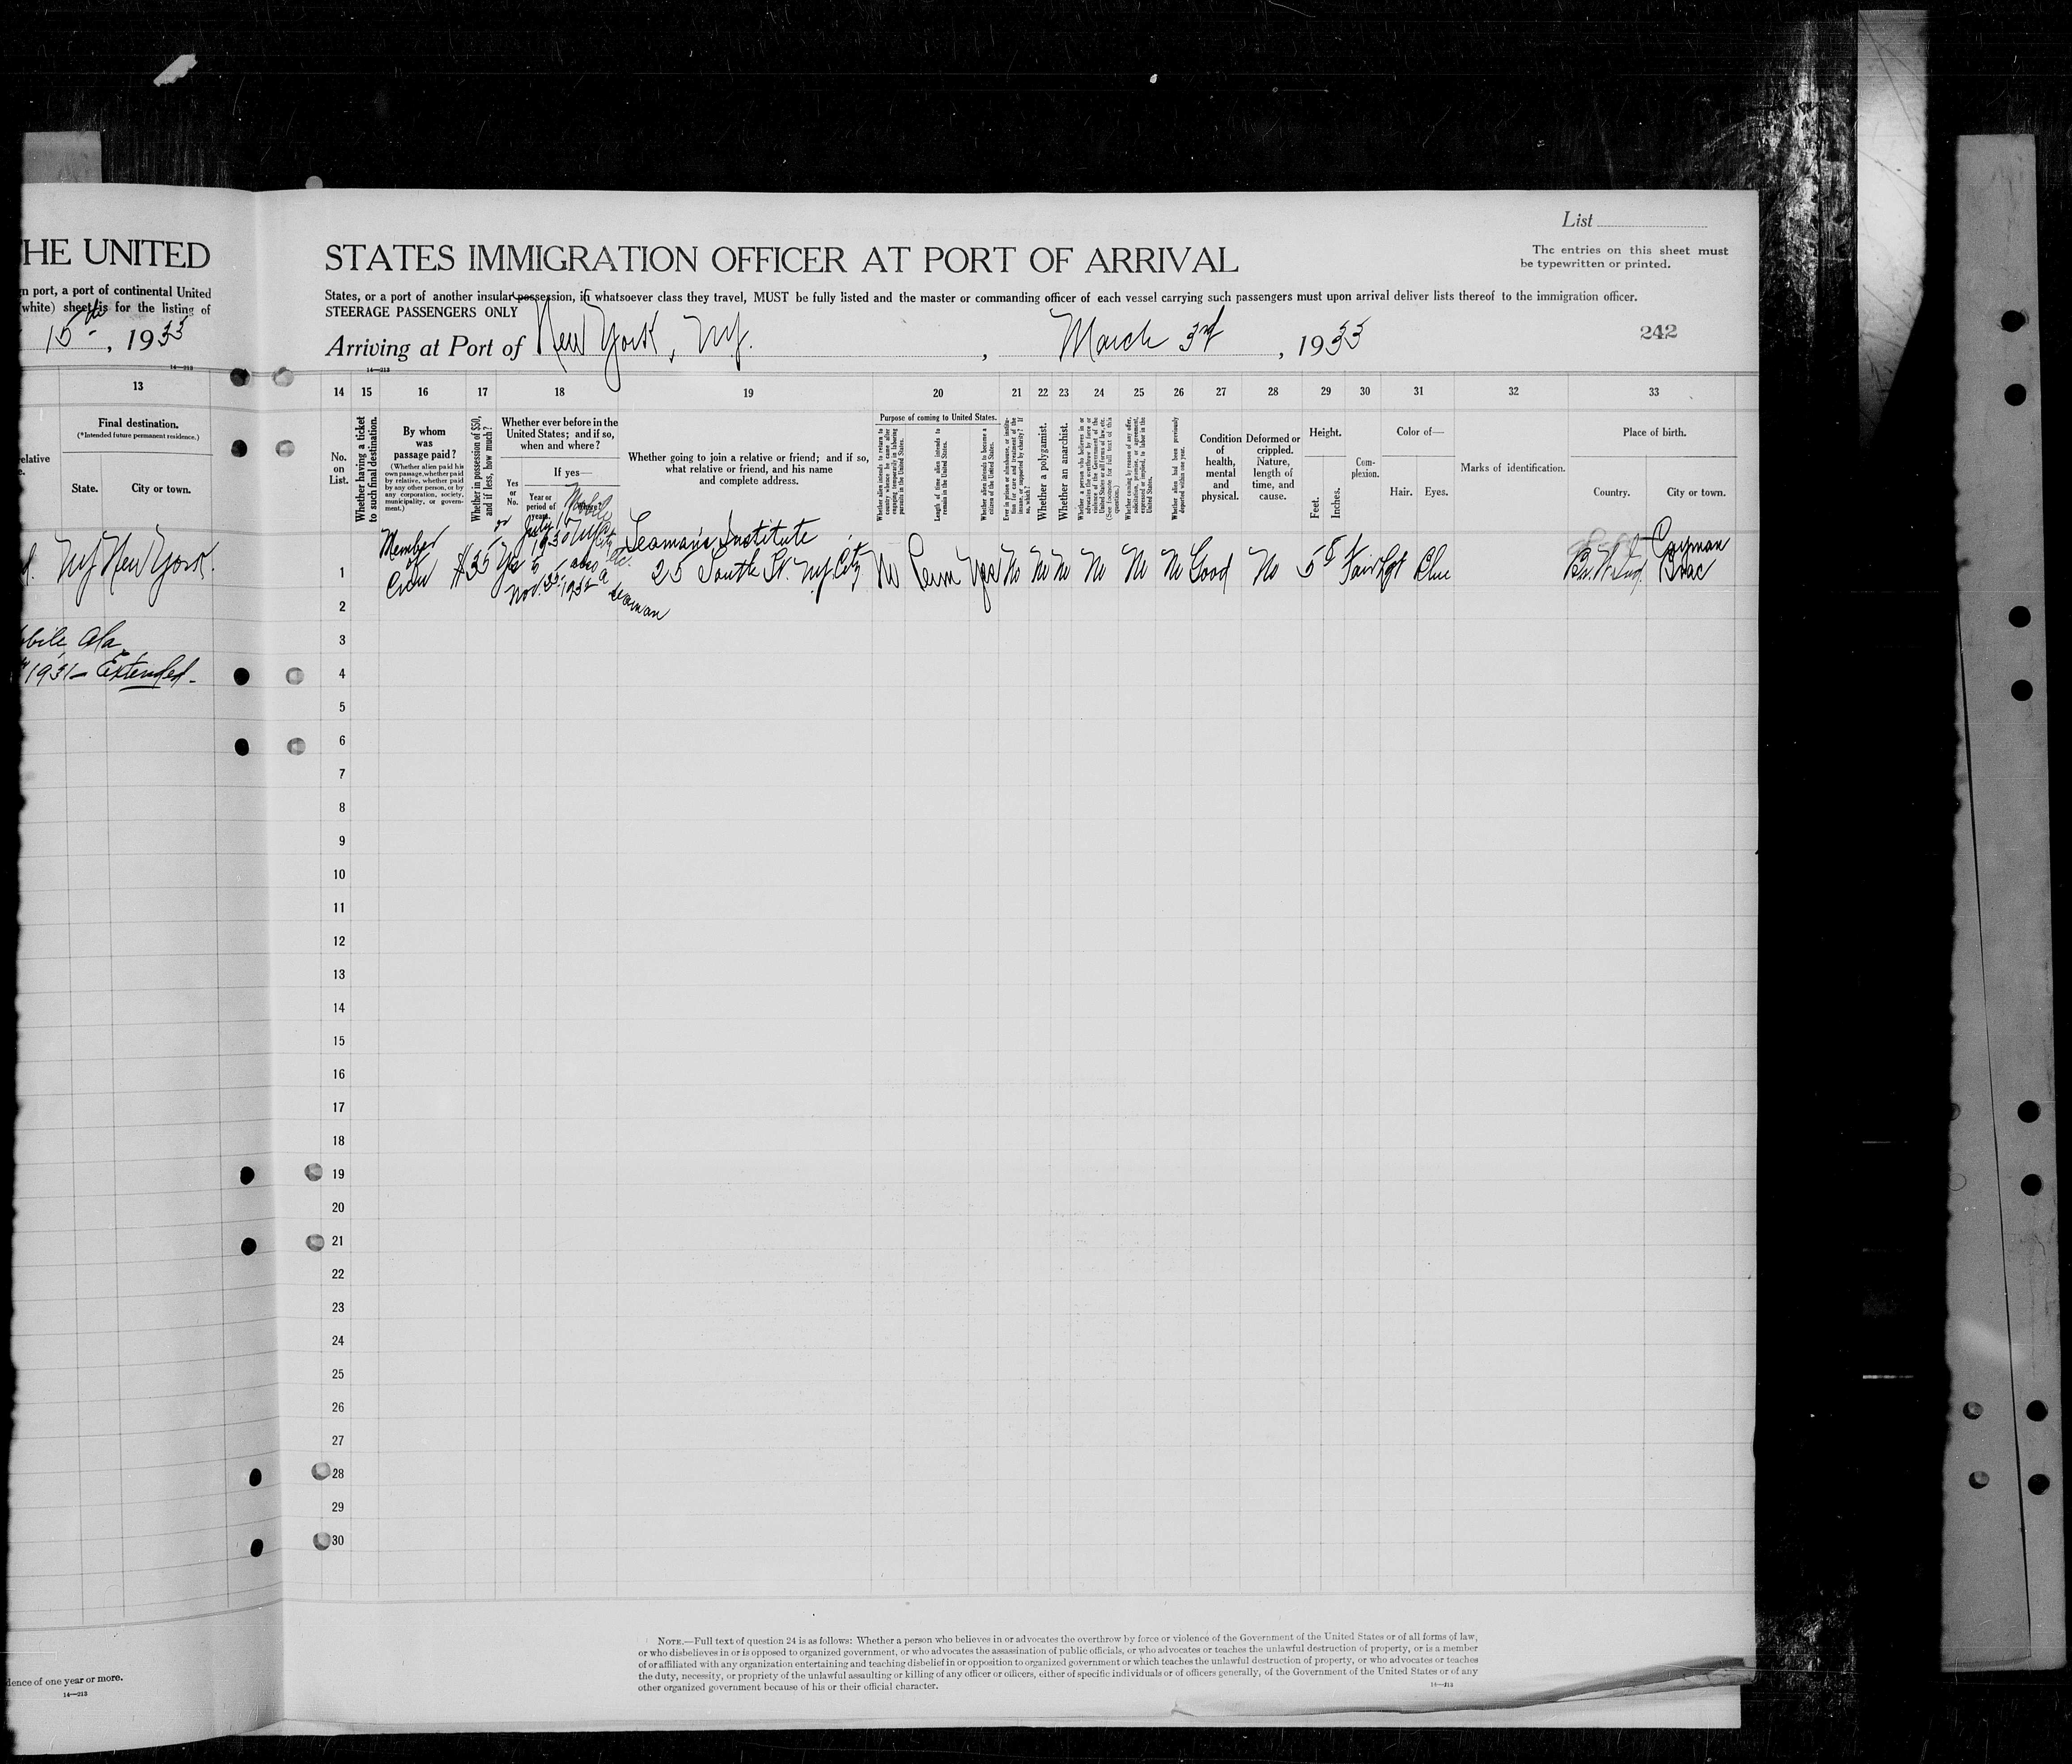 HE UNITED
n port, a port of continental United
(white) sheet is for the listing of
15th, 1933
14—213
13
Final destination.
(*Intended future permanent residence.)
elative
e.
State.
City or town.
N.Y. New York.
bile, Ala.
1931 – Extended –
dence of one year or more.
14—213
List
The entries on this sheet must
be typewritten or printed.
STATES IMMIGRATION OFFICER AT PORT OF ARRIVAL
States, or a port of another insular possession, in whatsoever class they travel, MUST be fully listed and the master or commanding officer of each vessel carrying such passengers must upon arrival deliver lists thereof to the immigration officer.
STEERAGE PASSENGERS ONLY
Arriving at Port of New York, N.Y. , March 3rd , 1933
242
14—213
14 15 16 17 18 19 20 21 22 23 24 25 26 27 28 29 30 31 32 33
No. on List.
Whether having a ticket to such final destination.
By whom was passage paid?
(Whether alien paid his own passage, whether paid by relative, whether paid by any other person, or by any corporation, society, municipality, or government.)
Whether in possession of $50, and if less, how much?
Whether ever before in the United States; and if so, when and where?
If yes—
Yes or No.
Year or period of years.
Where?
Whether going to join a relative or friend; and if so, what relative or friend, and his name and complete address.
Purpose of coming to United States.
Whether alien intends to return to country whence he came after engaging temporarily in laboring pursuits in the United States.
Length of time alien intends to remain in the United States.
Whether alien intends to become a citizen of the United States.
Ever in prison or almshouse, or institution for care and treatment of the insane, or supported by charity? If so, which?
Whether a polygamist.
Whether an anarchist.
Whether a person who believes in or advocates the overthrow by force or violence of the Government of the United States or all forms of law, etc. (See footnote for full text of this question.)
Whether coming by reason of any offer, solicitation, promise, or agreement, expressed or implied, to labor in the United States.
Whether alien had been previously deported within one year.
Condition of health, mental and physical.
Deformed or crippled. Nature, length of time, and cause.
Height.
Feet.
Inches.
Complexion.
Color of—
Hair.
Eyes.
Marks of identification.
Place of birth.
Country.
City or town.
1 Member of Crew $35 Yes July 1930 Mobile also Nov. 1932 a seaman
Seaman's Institute
25 South St. N.Y. City
No Perm Yes No No No No No No Good No 5 8 Fair Lgt Blue Br. W. Ind. Cayman Brac
2
3
4
5
6
7
8
9
10
11
12
13
14
15
16
17
18
19
20
21
22
23
24
25
26
27
28
29
30
NOTE.—Full text of question 24 is as follows: Whether a person who believes in or advocates the overthrow by force or violence of the Government of the United States or of all forms of law,
or who disbelieves in or is opposed to organized government, or who advocates the assassination of public officials, or who advocates or teaches the unlawful destruction of property, or is a member
of or affiliated with any organization entertaining and teaching disbelief in or opposition to organized government or which teaches the unlawful destruction of property, or who advocates or teaches
the duty, necessity, or propriety of the unlawful assaulting or killing of any officer or officers, either of specific individuals or of officers generally, of the Government of the United States or of any
other organized government because of his or their official character.
14—213